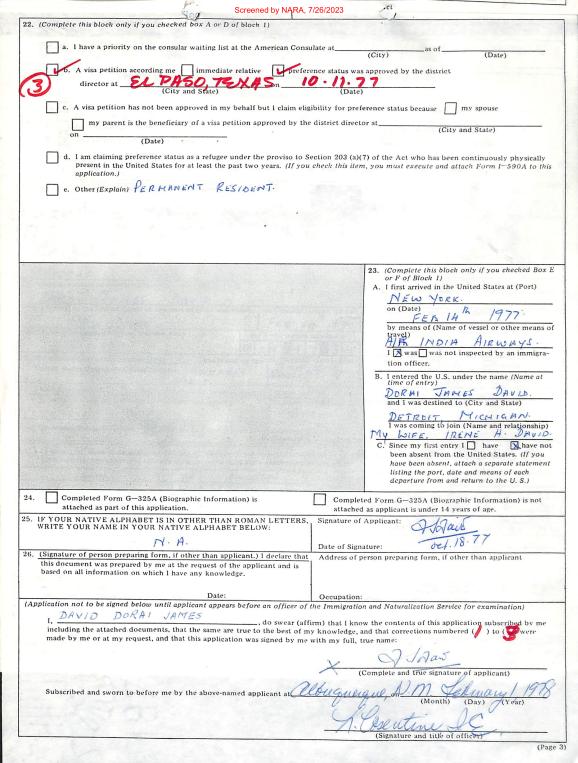 Screened by NARA, 7/26/2023
22. (Complete this block only if you checked box A or D of block 1)
a. I have a priority on the consular waiting list at the American Consulate at as of
(City) (Date)
b. A visa petition according me immediate relative preference status was approved by the district
3 director at EL PASO, TEXAS on 10-11-77
(City and State) (Date)
c. A visa petition has not been approved in my behalf but I claim eligibility for preference status because my spouse
my parent is the beneficiary of a visa petition approved by the district director at
(City and State)
on
(Date)
d. I am claiming preference status as a refugee under the proviso to Section 203 (a)(7) of the Act who has been continuously physically
present in the United States for at least the past two years. (If you check this item, you must execute and attach Form I-590A to this
application.)
e. Other (Explain) PERMANENT RESIDENT.
23. (Complete this block only if you checked Box E
or F of Block 1)
A. I first arrived in the United States at (Port)
NEW YORK.
on (Date)
FEB 14th 1977
by means of (Name of vessel or other means of
travel)
AIR INDIA AIRWAYS.
I X was was not inspected by an immigra-
tion officer.
B. I entered the U.S. under the name (Name at
time of entry)
DORAI JAMES DAVID.
and I was destined to (City and State)
DETROIT, MICHIGAN.
I was coming to join (Name and relationship)
MY WIFE, IRENE A. DAVID.
C. Since my first entry I have X have not
been absent from the United States. (If you
have been absent, attach a separate statement
listing the port, date and means of each
departure from and return to the U.S.)
24. Completed Form G-325A (Biographic Information) is
attached as part of this application.
Completed Form G-325A (Biographic Information) is not
attached as applicant is under 14 years of age.
25. IF YOUR NATIVE ALPHABET IS IN OTHER THAN ROMAN LETTERS,
WRITE YOUR NAME IN YOUR NATIVE ALPHABET BELOW:
N. A.
Signature of Applicant:
Date of Signature: Oct. 18. 77
26. (Signature of person preparing form, if other than applicant.) I declare that
this document was prepared by me at the request of the applicant and is
based on all information on which I have any knowledge.
Date:
Address of person preparing form, if other than applicant
Occupation:
(Application not to be signed below until applicant appears before an officer of the Immigration and Naturalization Service for examination)
I, DAVID DORAI JAMES, do swear (affirm) that I know the contents of this application subscribed by me
including the attached documents, that the same are true to the best of my knowledge, and that corrections numbered (1) to (3) were
made by me or at my request, and that this application was signed by me with my full, true name:
X
(Complete and true signature of applicant)
Subscribed and sworn to before me by the above-named applicant at Albuquerque, N.M. February 1 1978
(Month) (Day) (Year)
(Signature and title of officer)
(Page 3)